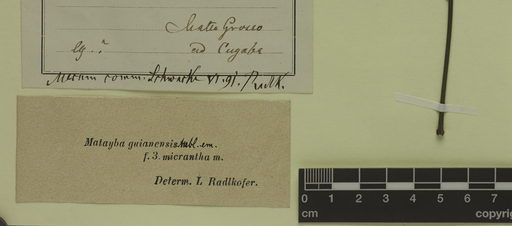 Matto Grosso
ad Cuyaba
Mecum comm. Schwacke VI 91. Radlk.
Matayba guianensis Aubl. em.
f. 3. micrantha m.
Determ. L Radlkofer.
0 1 2 3 4 5 6 7
cm copyrig